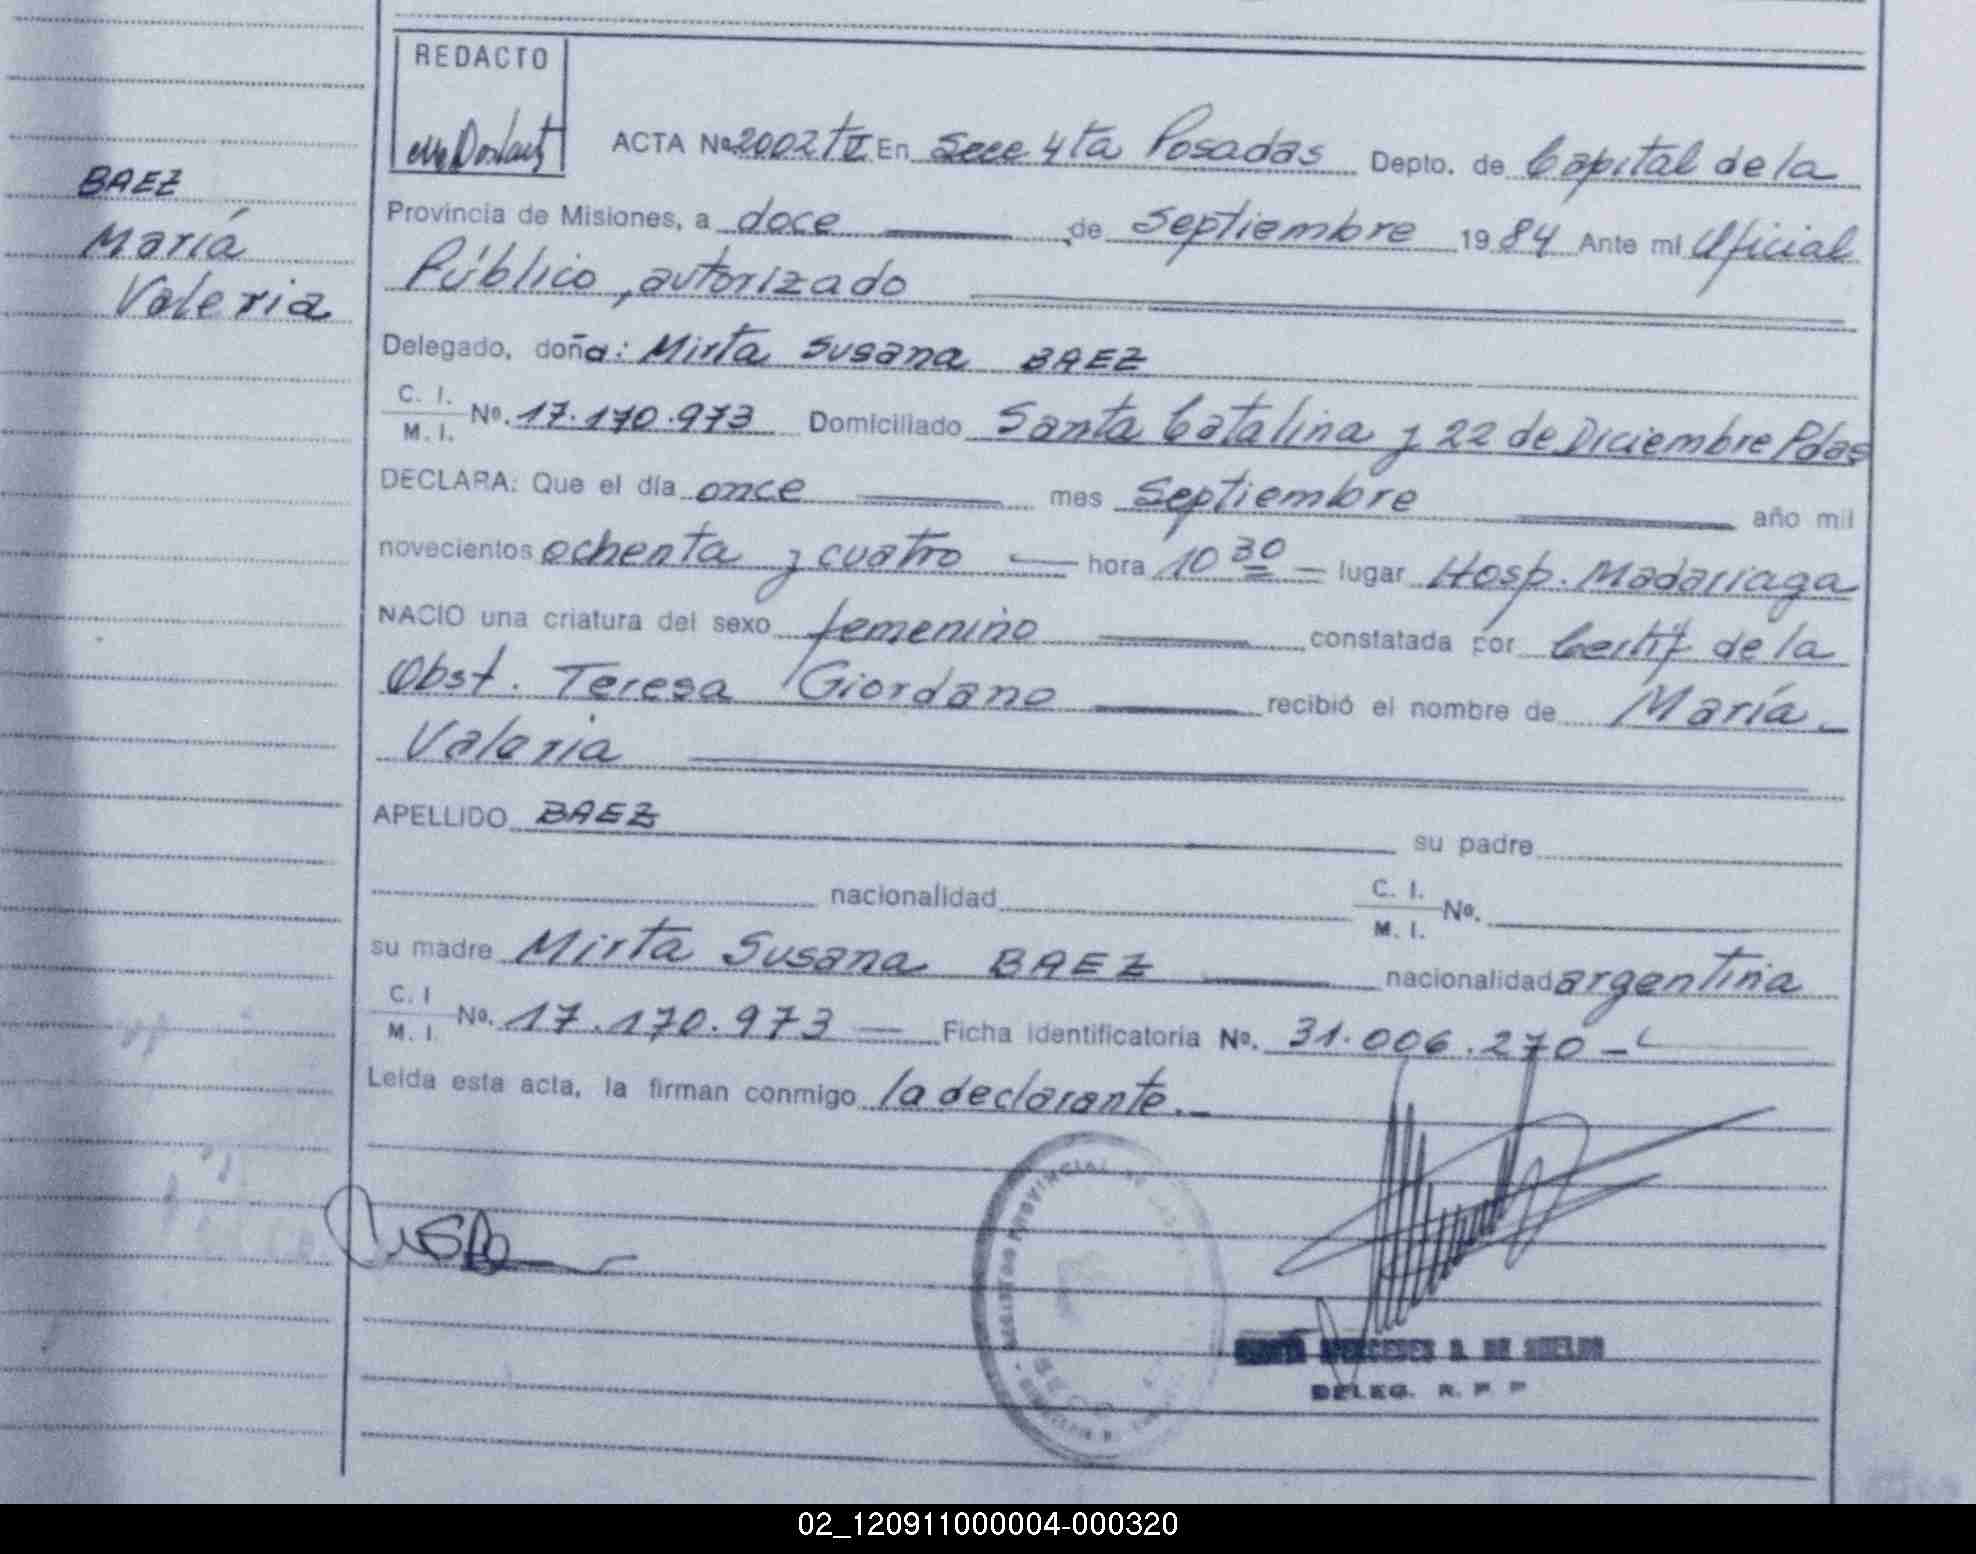 REDACTO
ACTA Nº 2002 tº II En Secc 4ta Posadas Depto. de Capital de la
BAEZ
María
Valeria
Provincia de Misiones, a doce de Septiembre 1984 Ante mi Oficial
Público, autorizado
Delegado, doña: Mirta Susana BAEZ
C. I.
M. I. Nº. 17.170.973 Domiciliado Santa Catalina y 22 de Diciembre Pdas
DECLARA: Que el día once mes Septiembre año mil
novecientos ochenta y cuatro hora 10 30 lugar Hosp. Madariaga
NACIO una criatura del sexo femenino constatada por Certif de la
Obst. Teresa Giordano recibió el nombre de María
Valeria
APELLIDO BAEZ su padre
nacionalidad C. I.
M. I. Nº.
su madre Mirta Susana BAEZ nacionalidad argentina
C. I
M. I. Nº. 17.170.973 Ficha identificatoria Nº. 31.006.270
Leída esta acta, la firman conmigo la declarante.
PROVINCIAL DE LAS
MERCEDES
DELEG. R. P. P
02_120911000004-000320